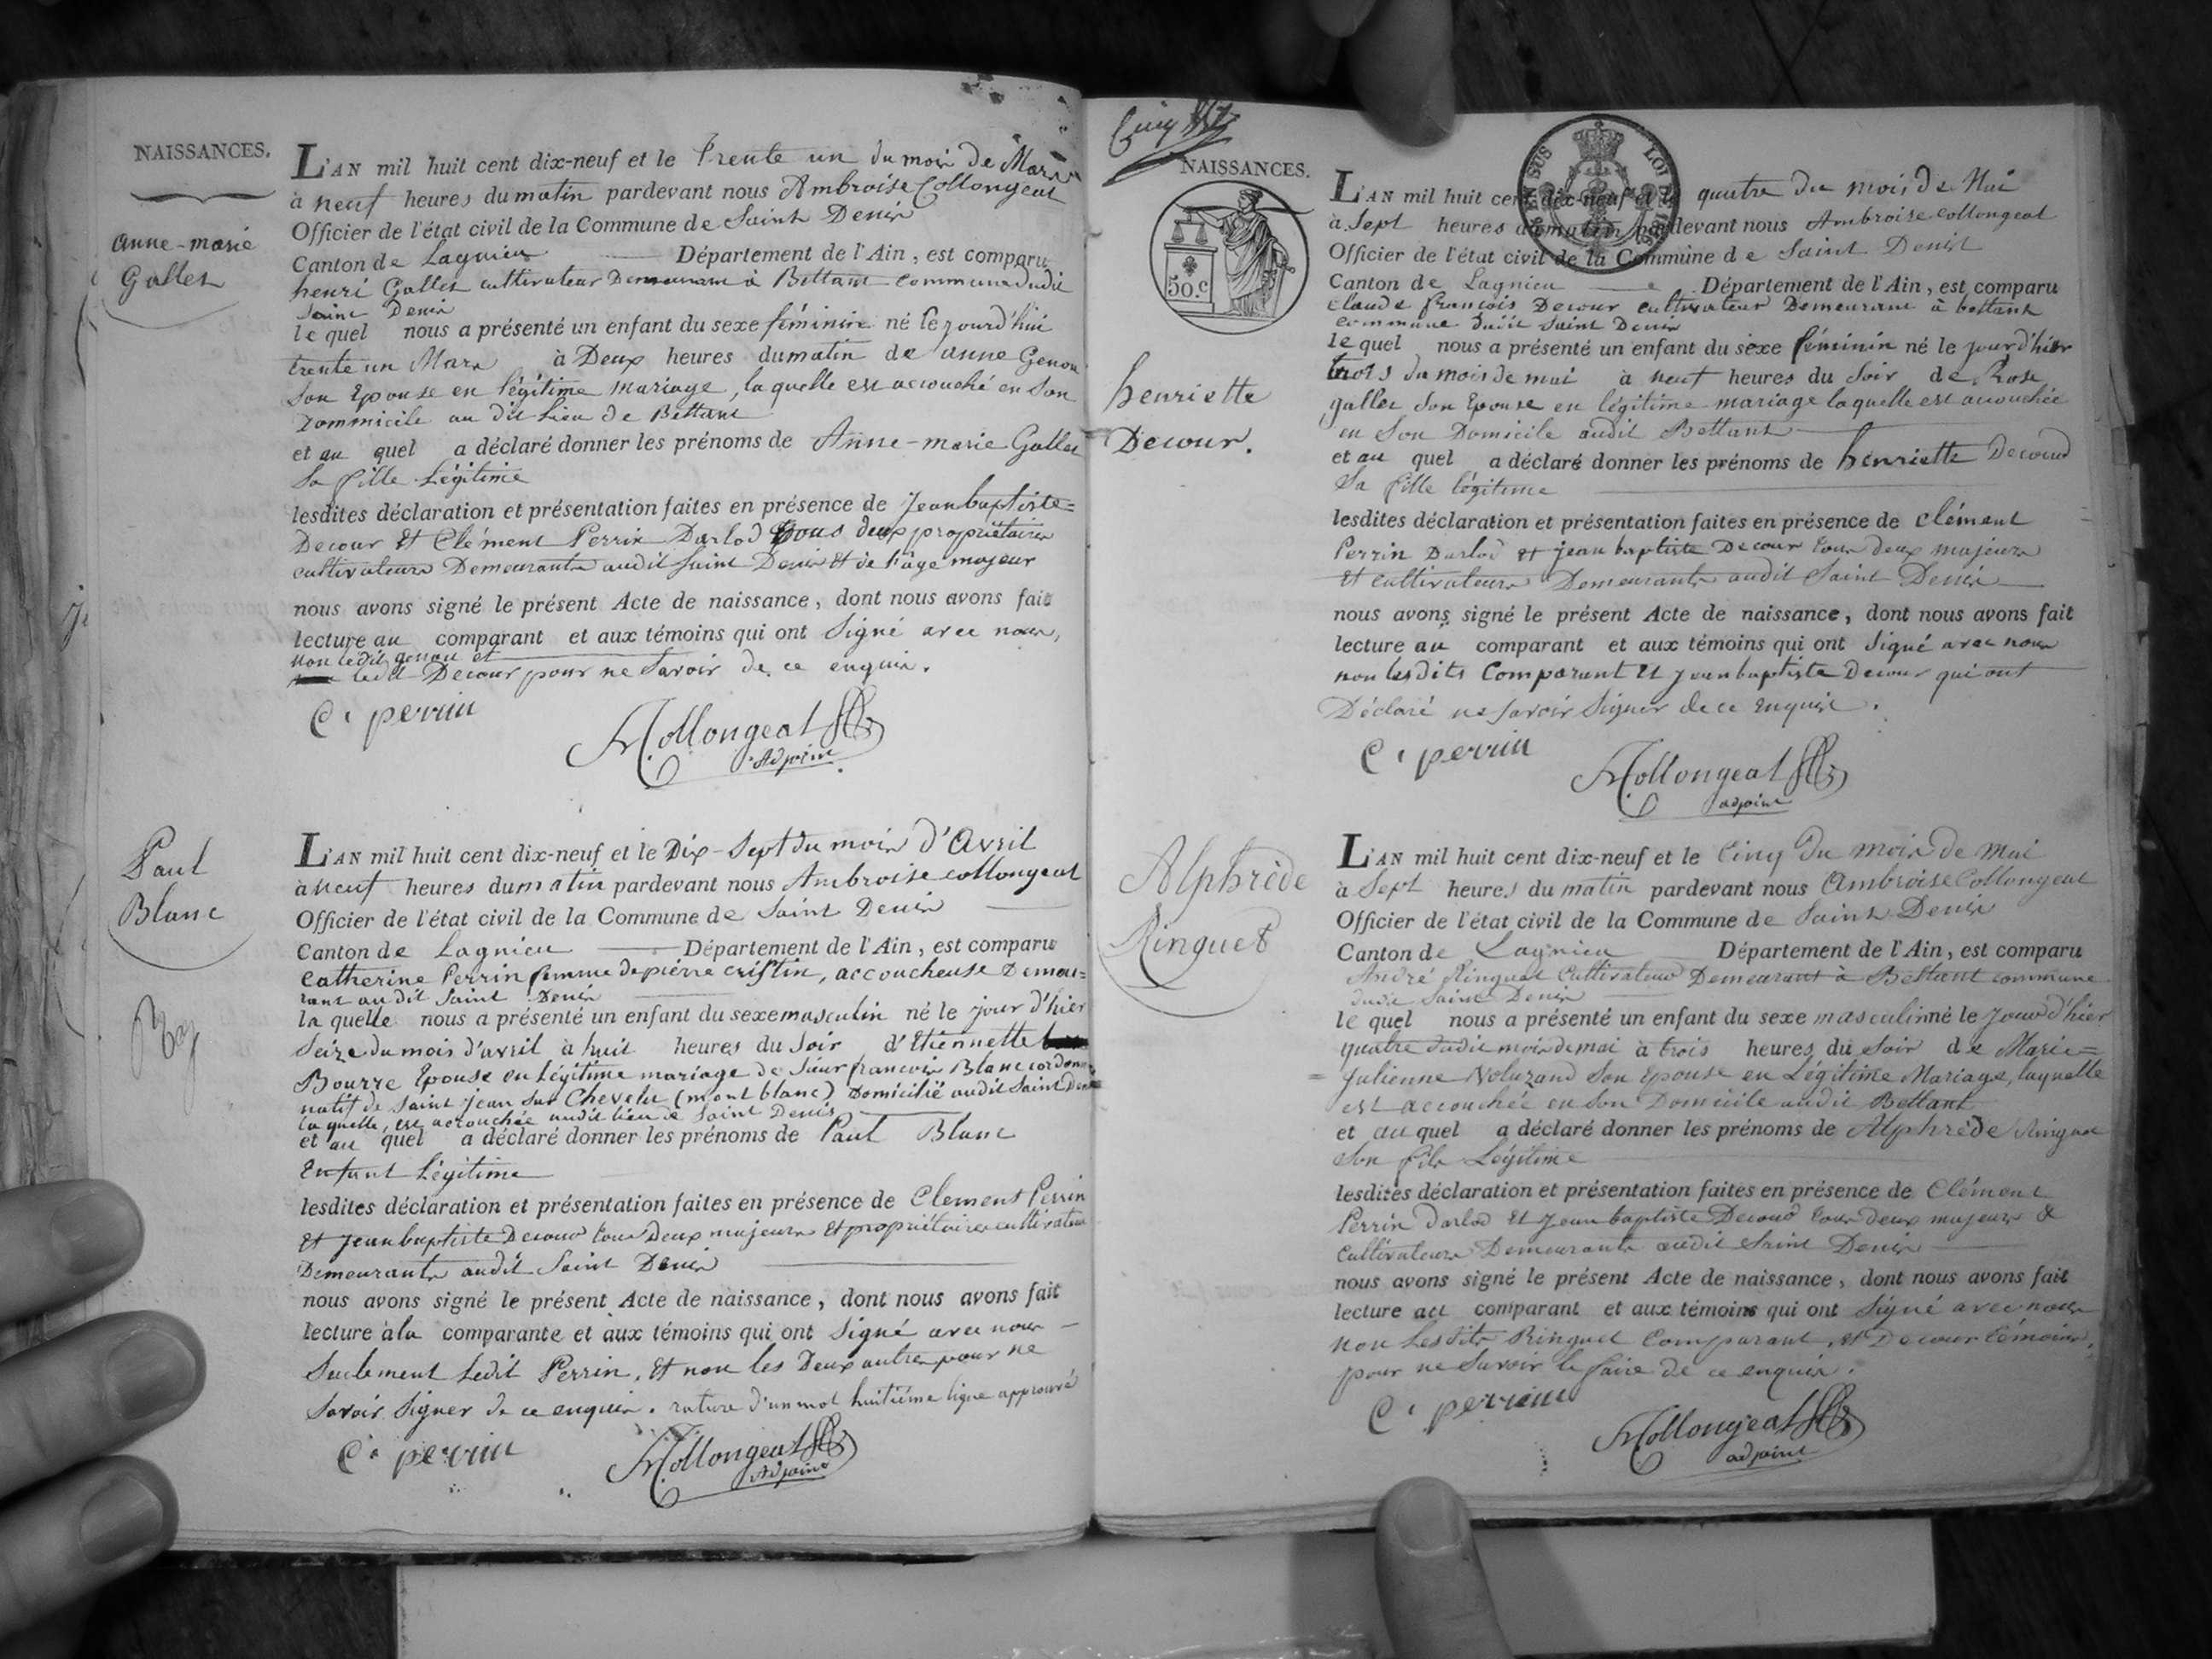 NAISSANCES.
Anne-marie
Gallet
L'AN mil huit cent dix-neuf et le trente un du mois de Mars
à neuf heures du matin pardevant nous Ambroise Collongeat
Officier de l'état civil de la Commune de Saint Denis
Canton de Lagnieu Département de l'Ain, est comparu
henri Gallet cultivateur Demeurant à Bettant commune dudit
Saint Denis
le quel nous a présenté un enfant du sexe féminin né le jourd'hui
trente un Mars à Deux heures du matin de anne Genou
Son Epouse en légitime mariage, la quelle est accouché en Son
Dommicile au dit Lieu de Bettant
et au quel a déclaré donner les prénoms de Anne-marie Gallet
Sa fille Légitime
lesdites déclaration et présentation faites en présence de Jean baptiste=
Decour et Clément Perrin Darlod tous deux propriétaires
cultivateurs Demeurants audit Saint Denis et de l'âge majeur
nous avons signé le présent Acte de naissance, dont nous avons fait
lecture au comparant et aux témoins qui ont Signé avec nous,
non ledit genou et
ledit Decour pour ne Savoir de ce enquis.
C. perrin
Collongeat
Adjoint
Paul
Blanc
L'AN mil huit cent dix-neuf et le Dix-Sept du mois d'Avril
à neuf heures du matin pardevant nous Ambroise collongeat
Officier de l'état civil de la Commune de Saint Denis
Canton de Lagnieu Département de l'Ain, est comparu
Catherine Perrin femme de pierre cristin, accoucheuse Demeu=
rant audit Saint Denis
la quelle nous a présenté un enfant du sexe masculin né le jour d'hier
Seize du mois d'avril à huit heures du Soir d'Etiennette
Bourre Epouse en Légitime mariage de Sieur francois Blanc cordon
natif de Saint Jean Sur Chevelu (mont blanc) Domicilié audit Saint Denis
la quelle, est accouchée audit lieu de Saint Denis
et au quel a déclaré donner les prénoms de Paul Blanc
Enfant Légitime
lesdites déclaration et présentation faites en présence de Clement Perrin
Et Jean baptiste Decour tous Deux majeurs et propriétaires cultivateurs
Demeurants audit Saint Denis
nous avons signé le présent Acte de naissance, dont nous avons fait
lecture à la comparante et aux témoins qui ont Signé avec nous
Seulement Ledit Perrin, et non les Deux autres pour ne
Savoir Signer de ce enquis. rature d'un mot huitième ligne approuvé
C. perrin
Collongeat
Adjoint
Cinq
NAISSANCES.
50.c
EN SUS LOI DE 1816
henriette
Decour.
L'AN mil huit cent dix-neuf et le quatre du mois de Mai
à Sept heures du matin pardevant nous Ambroise collongeat
Officier de l'état civil de la Commune de Saint Denis
Canton de Lagnieu Département de l'Ain, est comparu
claude françois Decour cultivateur Demeurant à bettant
commune dudit Saint Denis
le quel nous a présenté un enfant du sexe féminin né le jour d'hier
trois du mois de mai à neuf heures du Soir de Rose
gallet Son Epouse en légitime mariage laquelle est accouchée
en Son Domicile audit Bettant
et au quel a déclaré donner les prénoms de henriette Decour
Sa fille légitime
lesdites déclaration et présentation faites en présence de clément
Perrin Darlod et jean baptiste Decour tous deux majeurs
et cultivateurs Demeurants audit Saint Denis
nous avons signé le présent Acte de naissance, dont nous avons fait
lecture au comparant et aux témoins qui ont Signé avec nous
non lesdits Comparant et Jean baptiste Decour qui ont
Déclaré ne Savoir Signer de ce Enquis.
C. perrin
Collongeat
adjoint
Alphrède
Ringuet
L'AN mil huit cent dix-neuf et le Cinq du mois de mai
à Sept heures du matin pardevant nous Ambroise Collongeat
Officier de l'état civil de la Commune de Saint Denis
Canton de Lagnieu Département de l'Ain, est comparu
André Ringuet Cultivateur Demeurant à Bettant commune
dudit Saint Denis
le quel nous a présenté un enfant du sexe masculin né le Jour d'hier
quatre dudit mois de mai à trois heures du Soir de Marie=
=Julienne Noluzand Son Epouse en Légitime Mariage, laquelle
est accouchée en Son Domicile audit Bettant
et au quel a déclaré donner les prénoms de Alphrède Ringuet
Son fils Légitime
lesdites déclaration et présentation faites en présence de Clément
Perrin Darlod et Jean baptiste Decour tous deux majeurs &
Cultivateurs Demeurants audit Saint Denis
nous avons signé le présent Acte de naissance, dont nous avons fait
lecture au comparant et aux témoins qui ont Signé avec nous
non Lesdits Ringuet Comparant, et Decour témoins,
pour ne Savoir le faire de ce enquis.
C. perrin
Collongeat
adjoint